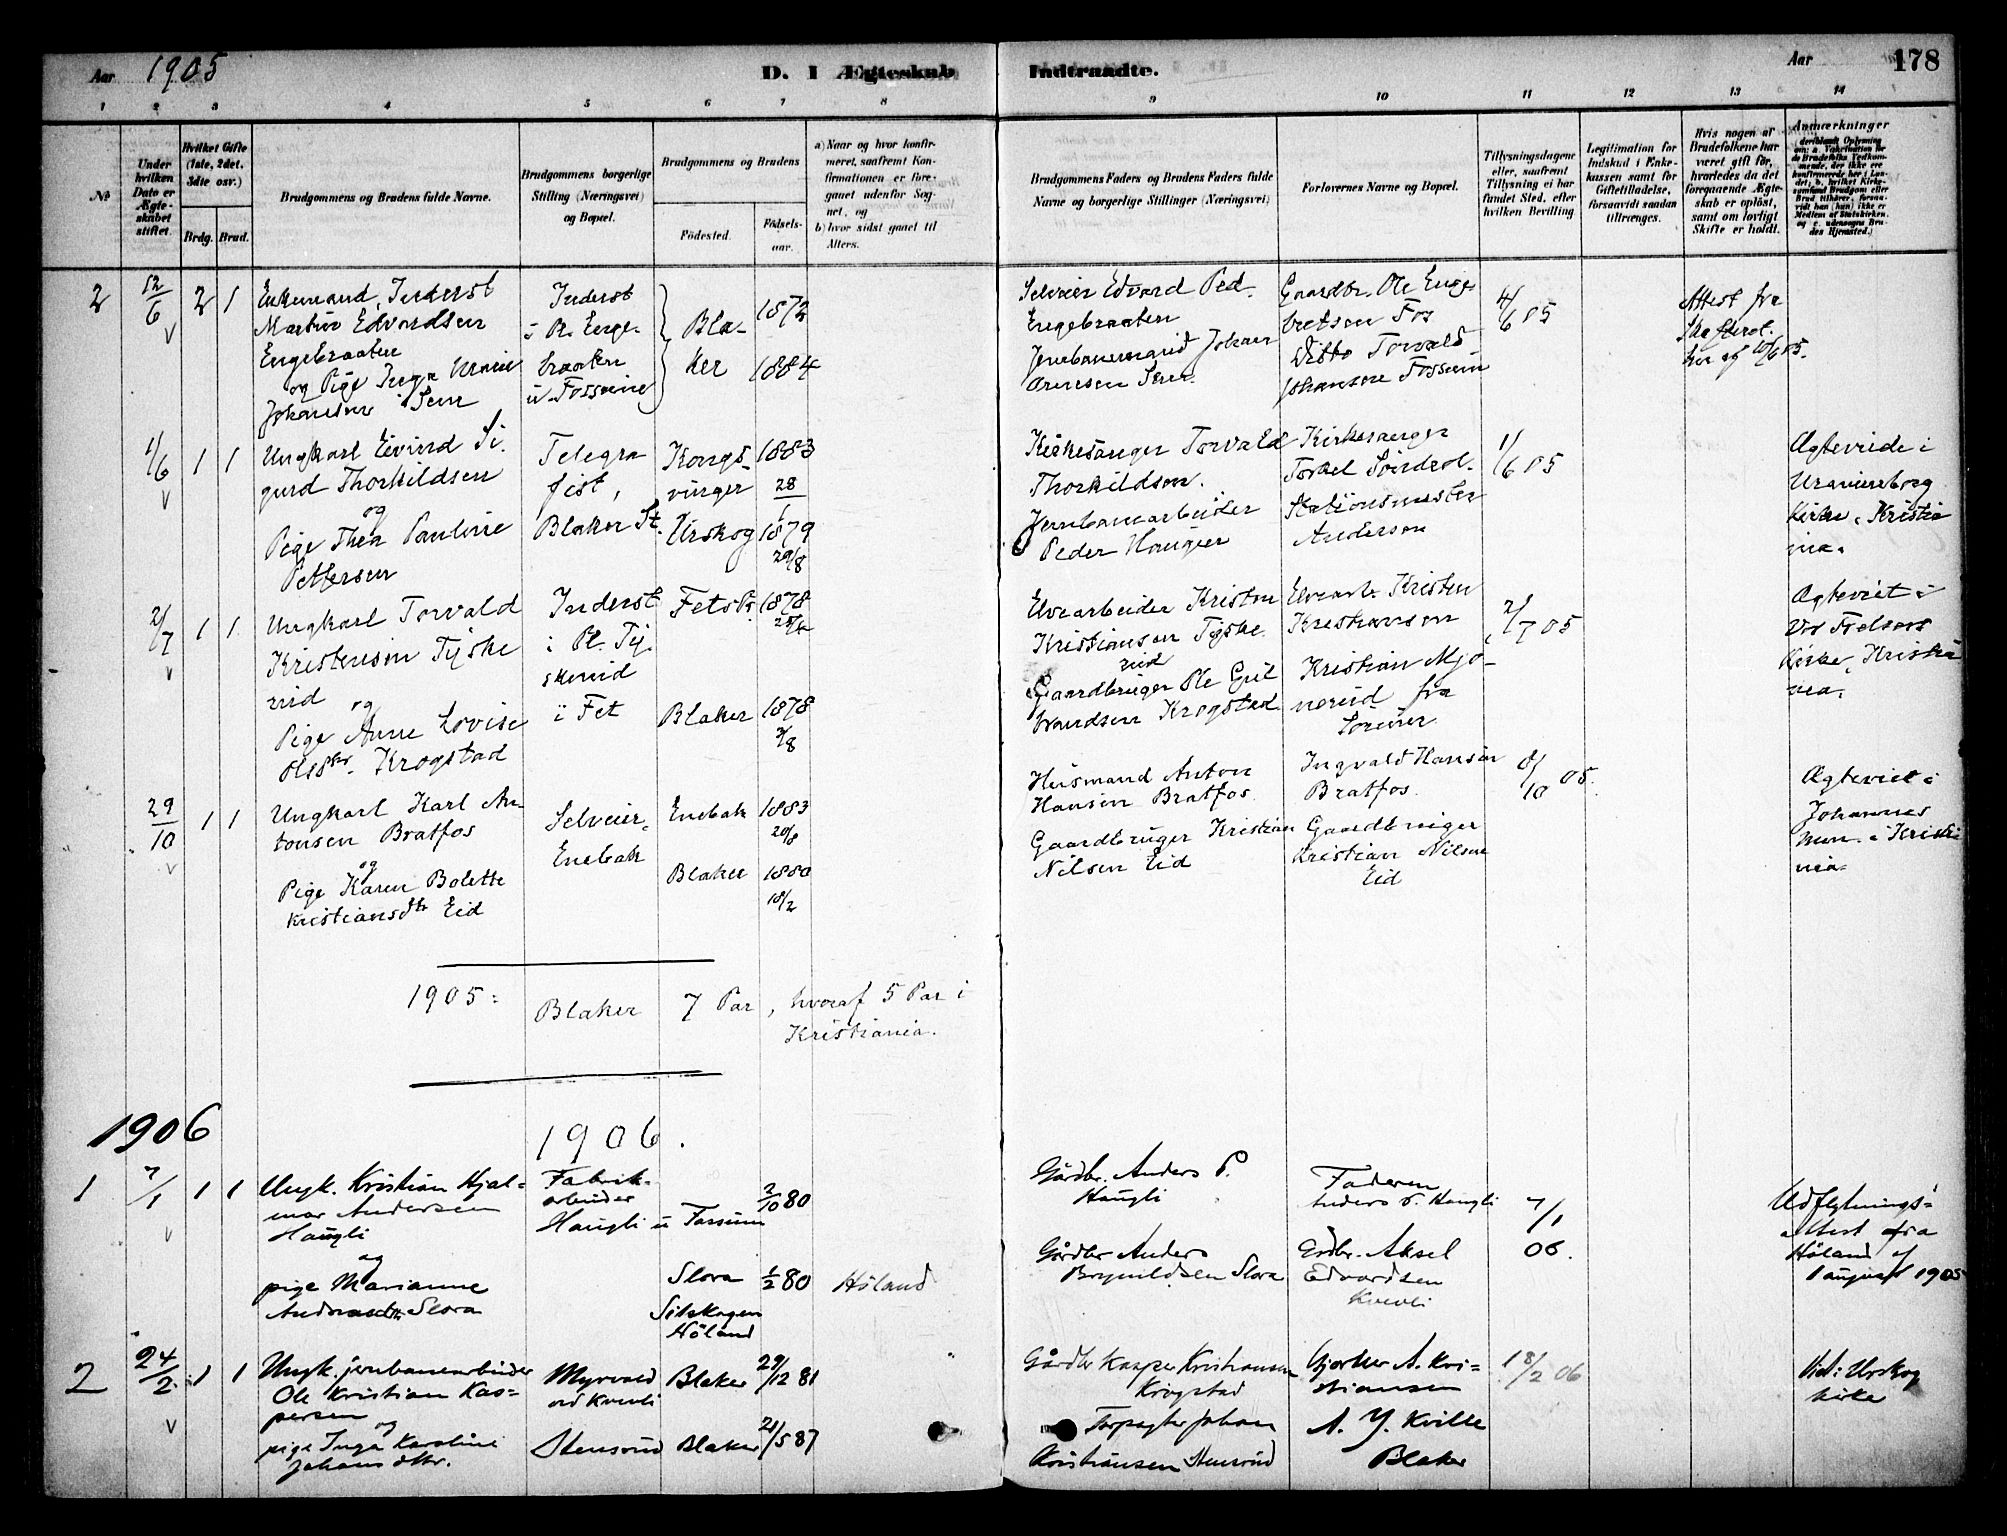 Aar 1905
D. I Ægteskab Indtraadte.
Aar 178
1 2 3 4 5 6 7 8 9 10 11 12 13 14
№
Under hvilken Dato er Ægteskabet stiftet.
Hvilket Gifte (1ste, 2det, 3die osv.)
Brdg. Brud.
Brudgommens og Brudens fulde Navne.
Brudgommens borgerlige Stilling (Næringsvei) og Bopæl.
Brudgommens og Brudens
Födested. Födselsaar.
a) Naar og hvor konfirmeret, saafremt Konfirmationen er foregaaet udenfor Sognet, og
b) hvor sidst gaaet til Alters.
Brudgommens Faders og Brudens Faders fulde Navne og borgerlige Stillinger (Næringsvei)
Forlovernes Navne og Bopæl.
Tillysningsdagene eller, saafremt Tillysning ei har fundet Sted, efter hvilken Bevilling
Legitimation for Indskud i Enkekassen samt for Giftetilladelse, forsaavidt saadan tiltrænges.
Hvis nogen af Brudefolkene har været gift för, hvorledes da det foregaaende Ægteskab er oplöst, samt om lovligt Skifte er holdt.
Anmærkninger
2 12/6 2 1
Enkemand, Inderst
Martin Edvardsen
Engebraaten
og Pige Inga Marie
Johansen Sem
Inderst
i Pl. Enge-
braaten
u. Fossum
Bla-
ker
1872
1884
Selveier Edvard Ped.
Engebraaten
Jernbanemand Johan
Gaardbr. Ole Enge-
bretsen Fos
Ditto Torvald
Johansen Fossum
4/6 05
Attest fra
1/6 1 1
Ungkarl Eivind Si-
gurd Thorkildsen
og
Pige Thea Pauline
Pettersen
Telegra
fist,
Blaker St.
Kongs-
vinger
Urskog
1883
28/1
1879
29/8
Kirkesanger Torvald
Thorkildsen.
Jernbanearbeider
Peder Haugen
Kirkesanger
Torkel
Stationsmester
Andersen
1/6 05
Ægteviede i
Uranienborg
Kirke, Kristia
nia.
2/7 1 1
Ungkarl Torvald
Kristensen Tyske
rud og
Pige Anne Lovise
Olsdtr. Krogstad
Inderst
i Pl. Ty-
skerud
i Fet
Fet
Blaker
1878
1878
3/8
Elvearbeider Kristen
Kristiansen Tyske
rud
Gaardbruger Ole Gul
brandsen Krogstad
Elvearb. Kristen
Kristiansen
Kristian Mjö-
nerud fra
Sörum
2/7 05
Ægteviet i
Vor Frelsers
Kirke, Kristia
nia.
29/10 1 1
Ungkarl Karl An-
tonsen Bratfos
og
Pige Karen Bolette
Kristiansdtr Eid
Selveier,
Enebak
Enebak
Blaker
1883
20/6
1880
18/2
Husmand Anton
Hansen Bratfos.
Gaardbruger Kristian
Nilsen Eid
Ingvald Hansen
Bratfos.
Gaardbruger
Kristian Nilsen
Eid
8/10 05.
Ægteviet i
Johannes
men. i Kristia
nia.
1905: Blaker 7 Par, hvoraf 5 Par i
Kristiania.
1906
1906.
1 7/1 1 1
Ungk. Kristian Hjal-
mar Andersen
Haugli
og
pige Marianne
Andersdtr. Slora
Fabrik-
arbeider
Haugli u Fossum
Slora
Setskogen
Höland
2/10 80
1/2 80
Höland
Gårdbr. Anders P.
Haugli
Gårdbr Anders
Brynildsen Slora
Faderen
Anders P. Haugli
Grdbr. Aksel
Edvardsen
Kvevli
7/1
06.
Udflytnings-
attest fra
Höland af
1 august 1905
2 24/2 1 1
Ungk. jernbanearbeider
Ole Kristian Kas-
persen
og
pige Inga Karoline
Johansdtr.
Myrvold
ved Kvevli
Stensrud
Blaker
Blaker
29/12 81
21/5 87
Gårdbr Kasper Kristiansen
Krogstad
Forpagter Johan
Kristiansen Stensrud
A. Kri-
stiansen
A. Y. Kville
Blaker
18/2 06
Viet i Urskog
kirke